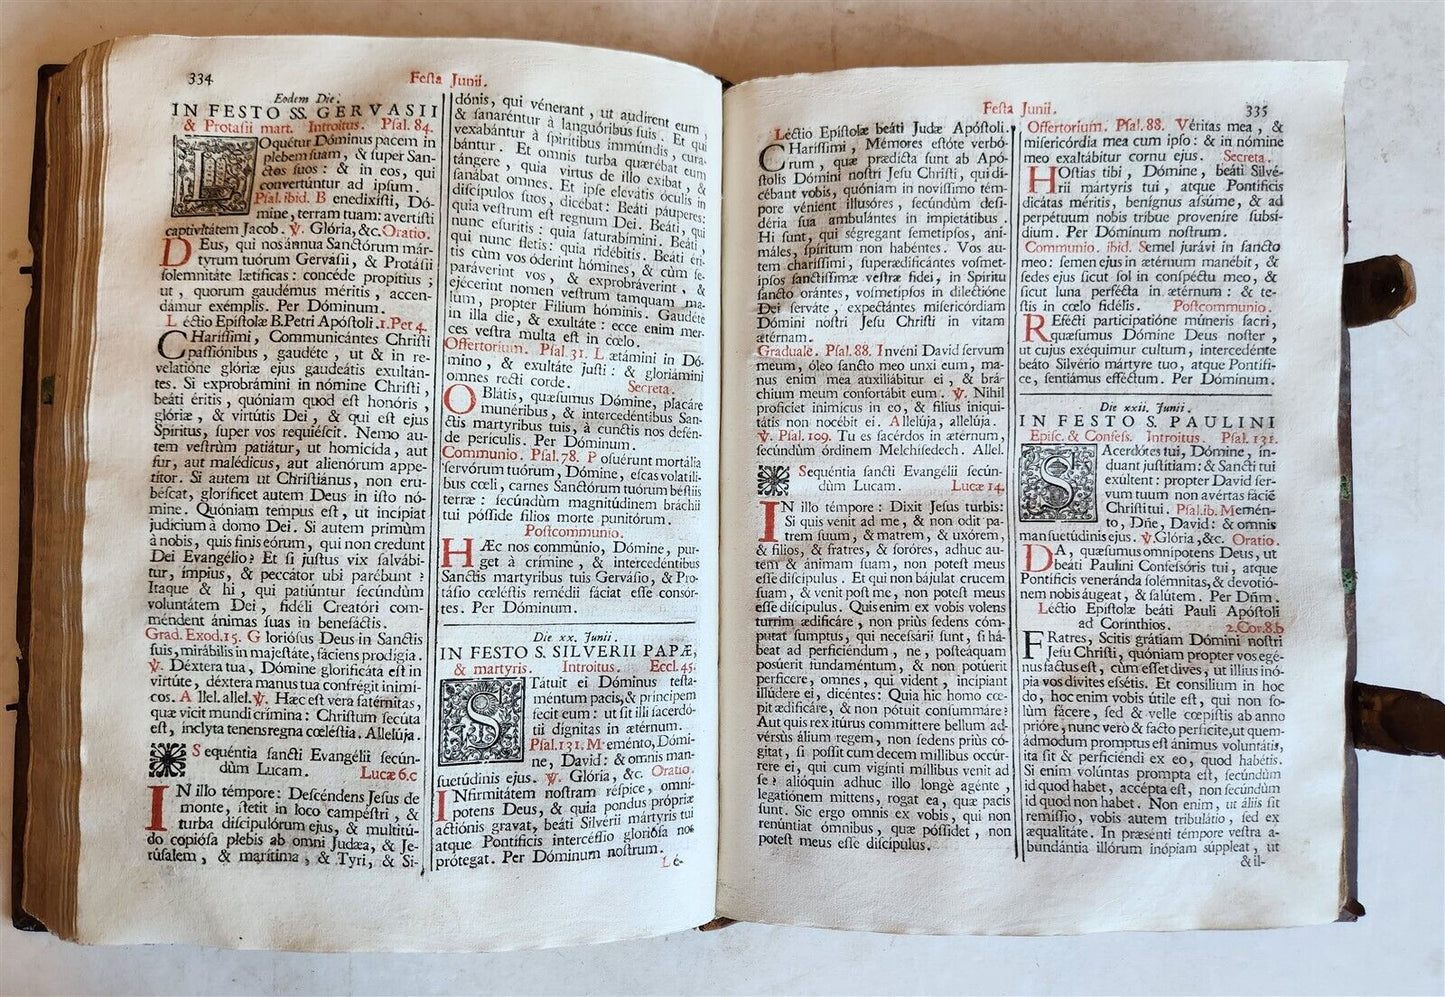 334
Festa Junii.
Eodem Die.
IN FESTO SS. GERVASII
& Protasii mart. Introitus. Psal. 84.
LOquétur Dóminus pacem in
plebem suam, & super San-
ctos suos: & in eos, qui
convertúntur ad ipsum.
Psal. ibid. Benedixísti, Dó-
mine, terram tuam: avertísti
captivitátem Jacob. ℣. Glória, &c. Oratio.
DEus, qui nos ánnua Sanctórum már-
tyrum tuórum Gervásii, & Protásii
solemnitáte lætíficas: concéde propítius;
ut, quorum gaudémus méritis, accen-
dámur exémplis. Per Dóminum.
Léctio Epístolæ B. Petri Apóstoli. 1. Pet 4.
CHaríssimi, Communicántes Christi
passiónibus, gaudéte, ut & in re-
velatióne glóriæ ejus gaudeátis exultán-
tes. Si exprobrámini in nómine Christi,
beáti éritis, quóniam quod est honóris,
glóriæ, & virtútis Dei, & qui est ejus
Spíritus, super vos requiéscit. Nemo au-
tem vestrûm patiátur, ut homicída, aut
fur, aut malédicus, aut alienórum appe-
títor. Si autem ut Christiánus, non eru-
béscat, gloríficet autem Deus in isto nó-
mine. Quóniam tempus est, ut incípiat
judícium à domo Dei. Si autem primùm
à nobis, quis finis eórum, qui non credunt
Dei Evangélio? Et si justus vix salvábi-
tur, ímpius, & peccátor ubi parébunt?
Itaque & hi, qui patiúntur secúndùm
voluntátem Dei, fidéli Creatóri com-
méndent ánimas suas in benefáctis.
Grad. Exod. 15. Gloriósus Deus in Sanctis
suis, mirábilis in majestáte, fáciens prodígia.
℣. Déxtera tua, Dómine glorificáta est in
virtúte, déxtera manus tua confrégit inimí-
cos. Allel. allel. ℣. Hæc est vera fatérnitas,
quæ vicit mundi crímina: Christum secúta
est, ínclyta tenens regna cœléstia. Allelúja.
Sequéntia sancti Evangélii secún-
dùm Lucam. Lucæ 6. c
IN illo témpore: Descéndens Jesus de
monte, stetit in loco campéstri, &
turba discipulórum ejus, & multitú-
do copiósa plebis ab omni Judæa, & Je-
rúsalem, & marítima, & Tyri, & Si-
dónis, qui vénerant, ut audírent eum,
& sanaréntur à languóribus suis. Et qui
vexabántur à spirítibus immúndis, cura-
bántur. Et omnis turba quærébat eum
tángere, quia virtus de illo exíbat, &
sanábat omnes. Et ipse elevátis óculis in
discípulos suos, dicébat: Beáti páuperes:
quia vestrum est regnum Dei. Beáti, qui
nunc esurítis: quia saturabímini. Beáti,
qui nunc fletis: quia ridébitis. Beáti éri-
tis cùm vos óderint hómines, & cùm se-
paráverint vos, & exprobráverint, &
ejécerint nomen vestrum tamquam ma-
lum, propter Fílium hóminis. Gaudéte
in illa die, & exultáte: ecce enim mer-
ces vestra multa est in cœlo.
Offertorium. Psal. 31. Lætámini in Dó-
mino, & exultáte justi: & gloriámini
omnes recti corde. Secreta.
OBlátis, quæsumus Dómine, placáre
munéribus, & intercedéntibus San-
ctis martyribus tuis, à cunctis nos defén-
de perículis. Per Dóminum.
Communio. Psal. 78. Posuérunt mortália
servórum tuórum, Dómine, escas volatíli-
bus cœli, carnes Sanctórum tuórum béstiis
terræ: secúndùm magnitúdinem bráchii
tui pósside fílios morte punitórum.
Postcommunio.
HÆc nos commúnio, Dómine, pur-
get à crímine, & intercedéntibus
Sanctis martyribus tuis Gervásio, & Pro-
tásio cœléstis remédii fáciat esse consór-
tes. Per Dóminum.
Die xx. Junii.
IN FESTO S. SILVERII PAPÆ,
& martyris. Introitus. Eccl. 45.
STátuit ei Dóminus testa-
méntum pacis, & príncipem
fecit eum: ut sit illi sacerdó-
tii dígnitas in ætérnum.
Psal. 131. Meménto, Dómi-
ne, David: & omnis man-
suetúdinis ejus. ℣. Glória, &c. Oratio.
INfirmitátem nostram réspice, omní-
potens Deus, & quia pondus própriæ
actiónis gravat, beáti Silvérii mártyris tui
atque Pontíficis intercéssio gloriósa nos
prótegat. Per Dóminum nostrum.
Lé-
Festa Junii.
335
Léctio Epístolæ beáti Judæ Apóstoli.
CHaríssimi, Mémores estóte verbó-
rum, quæ prædícta sunt ab Apó-
stolis Dómini nostri Jesu Christi, qui di-
cébant vobis, quóniam in novíssimo tém-
pore vénient illusóres, secúndùm desi-
déria sua ambulántes in impietátibus.
Hi sunt, qui ségregant semetípsos, ani-
máles, spíritum non habéntes. Vos au-
tem charíssimi, superædificántes vosmet-
ípsos sanctíssimæ vestræ fídei, in Spíritu
sancto orántes, vosmetípsos in dilectióne
Dei serváte, expectántes misericórdiam
Dómini nostri Jesu Christi in vitam
ætérnam.
Graduale. Psal. 88. Invéni David servum
meum, óleo sancto meo unxi eum, ma-
nus enim mea auxiliábitur ei, & brá-
chium meum confortábit eum. ℣. Nihil
profíciet inimícus in eo, & fílius iniqui-
tátis non nocébit ei. Allelúja, allelúja.
℣. Psal. 109. Tu es sacérdos in ætérnum,
secúndùm órdinem Melchísedech. Allel.
Sequéntia sancti Evangélii secún-
dùm Lucam. Lucæ 14.
IN illo témpore: Dixit Jesus turbis:
Si quis venit ad me, & non odit pa-
trem suum, & matrem, & uxórem,
& fílios, & fratres, & soróres, adhuc au-
tem & ánimam suam, non potest meus
esse discípulus. Et qui non bájulat crucem
suam, & venit post me, non potest meus
esse discípulus. Quis enim ex vobis volens
turrim ædificáre, non priùs sedens cóm-
putat sumptus, qui necessárii sunt, si há-
beat ad perficiéndum, ne, posteáquam
posúerit fundaméntum, & non potúerit
perfícere, omnes, qui vident, incípiant
illúdere ei, dicéntes: Quia hic homo cœ-
pit ædificáre, & non pótuit consummáre?
Aut quis rex itúrus commíttere bellum ad-
vérsùs álium regem, non sedens priùs có-
gitat, si possit cum decem míllibus occúr-
rere ei, qui cum vigínti míllibus venit ad
se? alióquin adhuc illo longè agénte,
legatiónem mittens, rogat ea, quæ pacis
sunt. Sic ergo omnis ex vobis, qui non
renúntiat ómnibus, quæ póssidet, non
potest meus esse discípulus.
Offertorium. Psal. 88. Véritas mea, &
misericórdia mea cum ipso: & in nómine
meo exaltábitur cornu ejus. Secreta.
HOstias tibi, Dómine, beáti Silvé-
rii mártyris tui, atque Pontíficis
dicátas méritis, benígnus assúme, & ad
perpétuum nobis tríbue proveníre subsí-
dium. Per Dóminum nostrum.
Communio. ibid. Semel jurávi in sancto
meo: semen ejus in ætérnum manébit, &
sedes ejus sicut sol in conspéctu meo, &
sicut luna perfécta in ætérnum: & te-
stis in cœlo fidélis. Postcommunio.
REfécti participatióne múneris sacri,
quæsumus Dómine Deus noster,
ut cujus exéquimur cultum, intercedénte
beáto Silvério mártyre tuo, atque Pontífi-
ce, sentiámus efféctum. Per Dóminum.
Die xxii. Junii.
IN FESTO S. PAULINI
Episc. & Confess. Introitus. Psal. 131.
SAcerdótes tui, Dómine, in-
duant justítiam: & Sancti tui
exúltent: propter David ser-
vum tuum non avértas fáciē
Christi tui. Psal. ib. Memén-
to, Dñe, David: & omnis
mansuetúdinis ejus. ℣. Glória, &c. Oratio.
DA, quæsumus omnípotens Deus, ut
beáti Paulíni Confessóris tui, atque
Pontíficis veneránda solémnitas, & devotió-
nem nobis áugeat, & salútem. Per Dñm.
Léctio Epístolæ beáti Pauli Apóstoli
ad Coríntios. 2. Cor. 8. b
FRatres, Scitis grátiam Dómini nostri
Jesu Christi, quóniam propter vos egé-
nus factus est, cùm esset dives, ut illíus inó-
pia vos dívites essétis. Et consílium in hoc
do, hoc enim vobis útile est, qui non so-
lùm fácere, sed & velle cœpístis ab anno
prióre, nunc verò & facto perfícite, ut quem-
ádmodum promptus est ánimus voluntátis,
ita sit & perficiéndi ex eo, quod habétis.
Si enim volúntas prompta est, secúndùm
id quod habet, accépta est, non secúndùm
id quod non habet. Non enim, ut áliis sit
remíssio, vobis autem tribulátio, sed ex
æqualitáte. In præsénti témpore vestra a-
bundántia illórum inópiam súppleat, ut
& il-